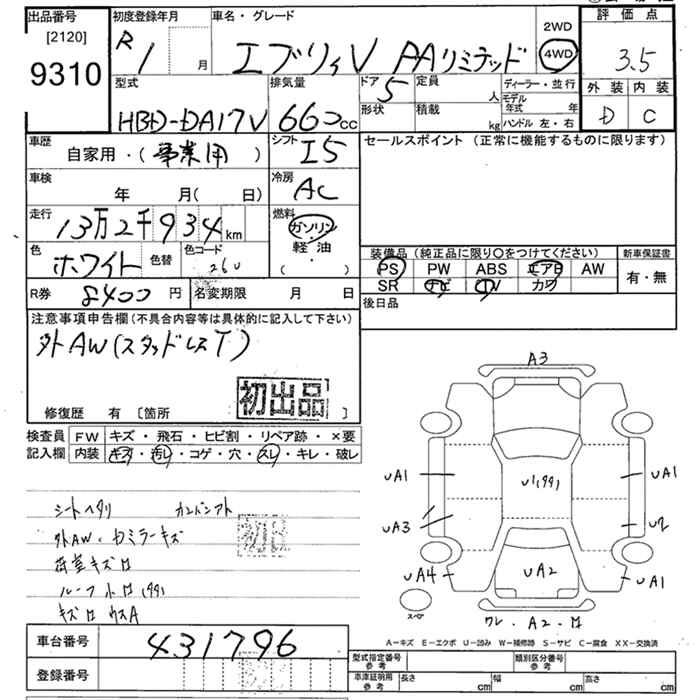 出品番号
[2120]
9310
初度登録年月
R1 月
車名・グレード
エブリィV PAリミテッド
2WD
4WD
評価点
3.5
外装 内装
D C
型式
HBD-DA17V
排気量
660 cc
ドア 5
定員 人
形状
積載 kg
ディーラー・並行
モデル年式 年
ハンドル 左・右
車歴
自家用・(事業用)
シフト
I5
セールスポイント (正常に機能するものに限ります)
車検
年 月(日)
冷房
AC
走行
13万2千934 km
燃料
ガソリン・
軽油・
( )
色
ホワイト
色替
色コード
26U
装備品 (純正品に限り○をつけてください)
新車保証書
PS PW ABS エアB AW
SR ナビ TV カワ
有・無
R券 8400 円
名変期限 月 日
後日品
注意事項申告欄 (不具合内容等は具体的に記入して下さい)
外AW(スタッドレスT)
初出品
修復歴 有 [箇所 ]
検査員記入欄
FW キズ・飛石・ヒビ割・リペア跡・×要
内装 キズ・汚レ・コゲ・穴・スレ・キレ・破レ
シートヘタリ
外AW
荷室キズ
A3
UA1
U1(99)
UA1
UA3
U2
UA4
UA2
UA1
スペア
ワレ・A2
A-キズ E-エクボ U-凹み W-補修跡 S-サビ C-腐食 XX-交換済
車台番号 431796
登録番号
型式指定番号 参考
類別区分番号 参考
車庫証明用 参考
長さ cm
幅 cm
高さ cm